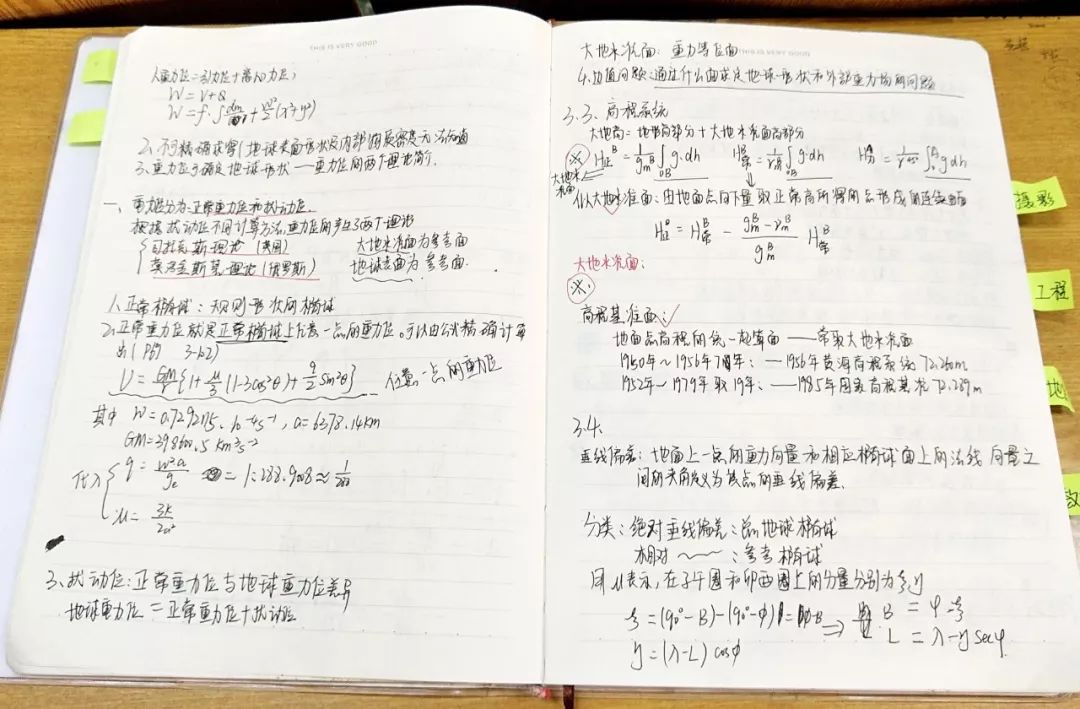 THIS IS VERY GOOD
1.重力位=引力位+离心力位;
W = V+Q
W = f·∫dm/r + ω²/2(x²+y²)
2.不可精确求得(地球表面形状及内部质量密度无法知道
3.重力位可确定地球形状——重力位的两个理论
一、重力位分为正常重力位和扰动位.
根据扰动位不同计算方法,重力位的产生了两个理论
司托克斯理论(英国) 大地水准面为参考面
莫洛金斯基理论(俄罗斯) 地球表面为参考面.
1.正常椭球:规则形状的椭球
2.正常重力位就是正常椭球上任意一点的重力位.可以由公式精确计算
出(P61 3-62)
U = GM/r{1+μ/3(1-3cos²θ)+q/2 sin²θ} 任意一点的重力位
其中 W=0.7292115.10⁻⁴s⁻¹, a=6378.14km
GM=398600.5 km³s⁻²
代入 q = ω²a/ge = 1:288.9008≈
μ = 3K/2a²
3、扰动位:正常重力位与地球重力位差异
地球重力位=正常重力位+扰动位
大地水准面:重力等位面
THIS IS VERY GOOD
4.边值问题:通过什么面求定地球形状和外部重力场的问题
3.3.高程系统
大地高=地形高部分+大地水准面高部分
※ H正ᴮ=1/gmᴮ∫oB g·dh H常ᴮ=1/γmᴮ∫oB g·dh
大地水准面
似大地水准面:由地面点向下量取正常高所得的点形成的连续曲面
H正ᴮ = H常ᴮ - (gmᴮ-γmᴮ)/gmᴮ H常ᴮ
大地水准面:
※.
高程基准面:
地面点高程的统一起算面——常取大地水准面
1950年~1956年7年:—1956年黄海高程系统72.26m
1952年~1979年取19年:——1985年国家高程基准72.289m
3.4.
垂线偏差:地面上一点的重力向量和相应椭球面上的法线向量之
间的夹角定义为该点的垂线偏差.
分类:绝对垂线偏差:总地球椭球
相对~~:参考椭球
用u表示,在子午圈和卯酉圈上的分量分别为ξ,η
ξ=(90°-B)-(90°-φ)=φ-B ⇒ B = φ-ξ
η=(λ-L)cosφ L = λ-ηsecφ
摄影
工程
地
数